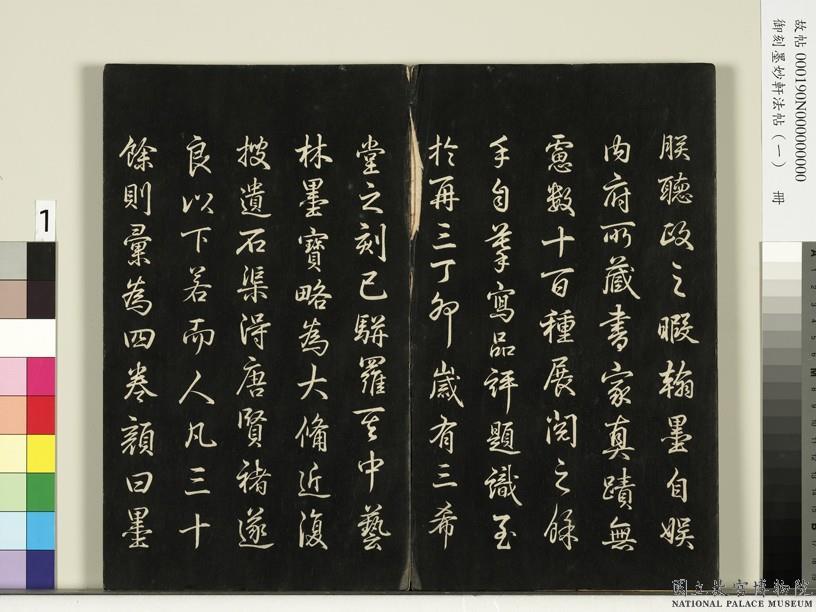 朕聽政之暇翰墨自娛
內府所藏書家真蹟無
慮數十百種展閱之餘
手自摹寫品評題識至
於再三丁卯歲有三希
堂之刻已駢羅其中藝
林墨寶略為大備近復
搜遺石渠得唐賢褚遂
良以下若而人凡三十
餘則彙為四卷顏曰墨
故帖000190N000000000
御刻墨妙軒法帖(一) 冊
1
國立故宮博物院
NATIONAL PALACE MUSEUM